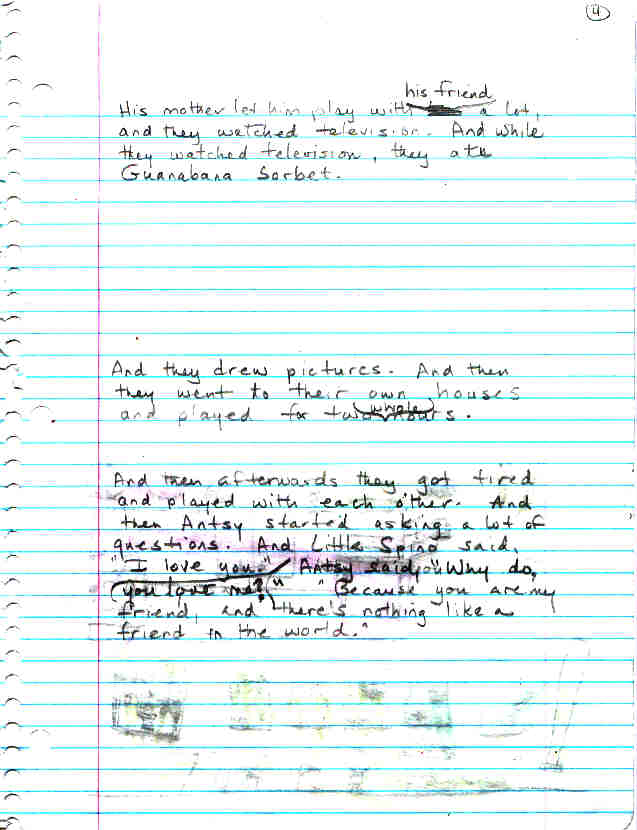 4
his friend
His mother let him play with a lot,
and they watched television. And while
they watched television, they ate
Guanabana Sorbet.
And they drew pictures. And then
they went to their own houses
and played for two whole hours.
And then afterwards they got tired
and played with each other. And
then Antsy started asking a lot of
questions. And Little Spino said,
"I love you." Antsy said, "Why do
you love me?" "Because you are my
friend, and there's nothing like a
friend in the world."